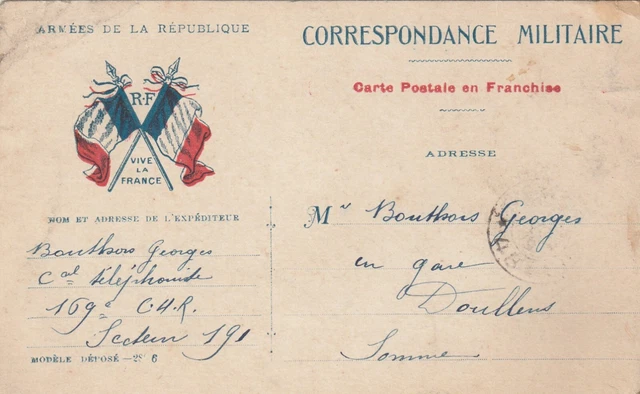 ARMÉES DE LA RÉPUBLIQUE
R.F
VIVE
LA
FRANCE
NOM ET ADRESSE DE L'EXPÉDITEUR
Bouthors Georges
Cal téléphoniste
169e C.H.R.
Secteur 191
MODÈLE DÉPOSÉ — 6
CORRESPONDANCE MILITAIRE
Carte Postale en Franchise
ADRESSE
Mr Bouthors Georges
en gare
Doullens
Somme